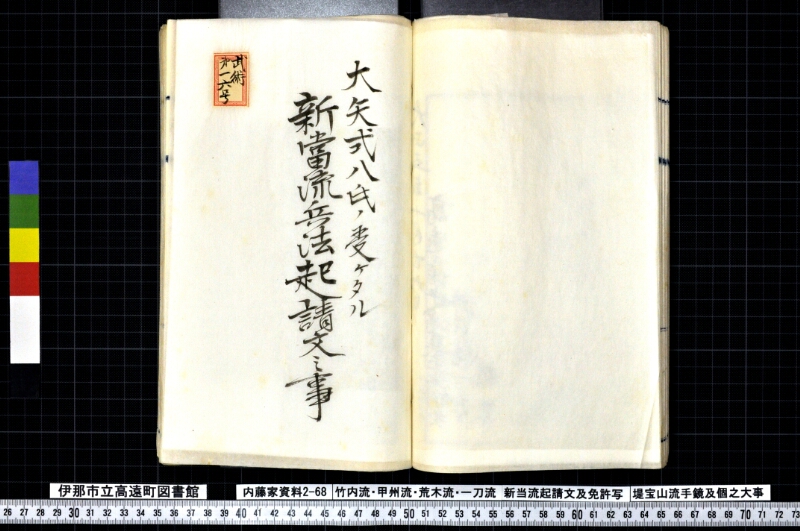 大矢弐八氏ノ受ケタル
新當流兵法起請文之事
武術
第一六号
伊那市立高遠町図書館
内藤家資料2-68
竹内流・甲州流・荒木流・一刀流 新当流起請文及免許写
堤宝山流手鏡及個之大事
26 27 28 29 30 31 32 33 34 35 36 37 38 39 40 41 42 43 44 45 46 47 48 49 50 51 52 53 54 55 56 57 58 59 60 61 62 63 64 65 66 67 68 69 70 71 72 73